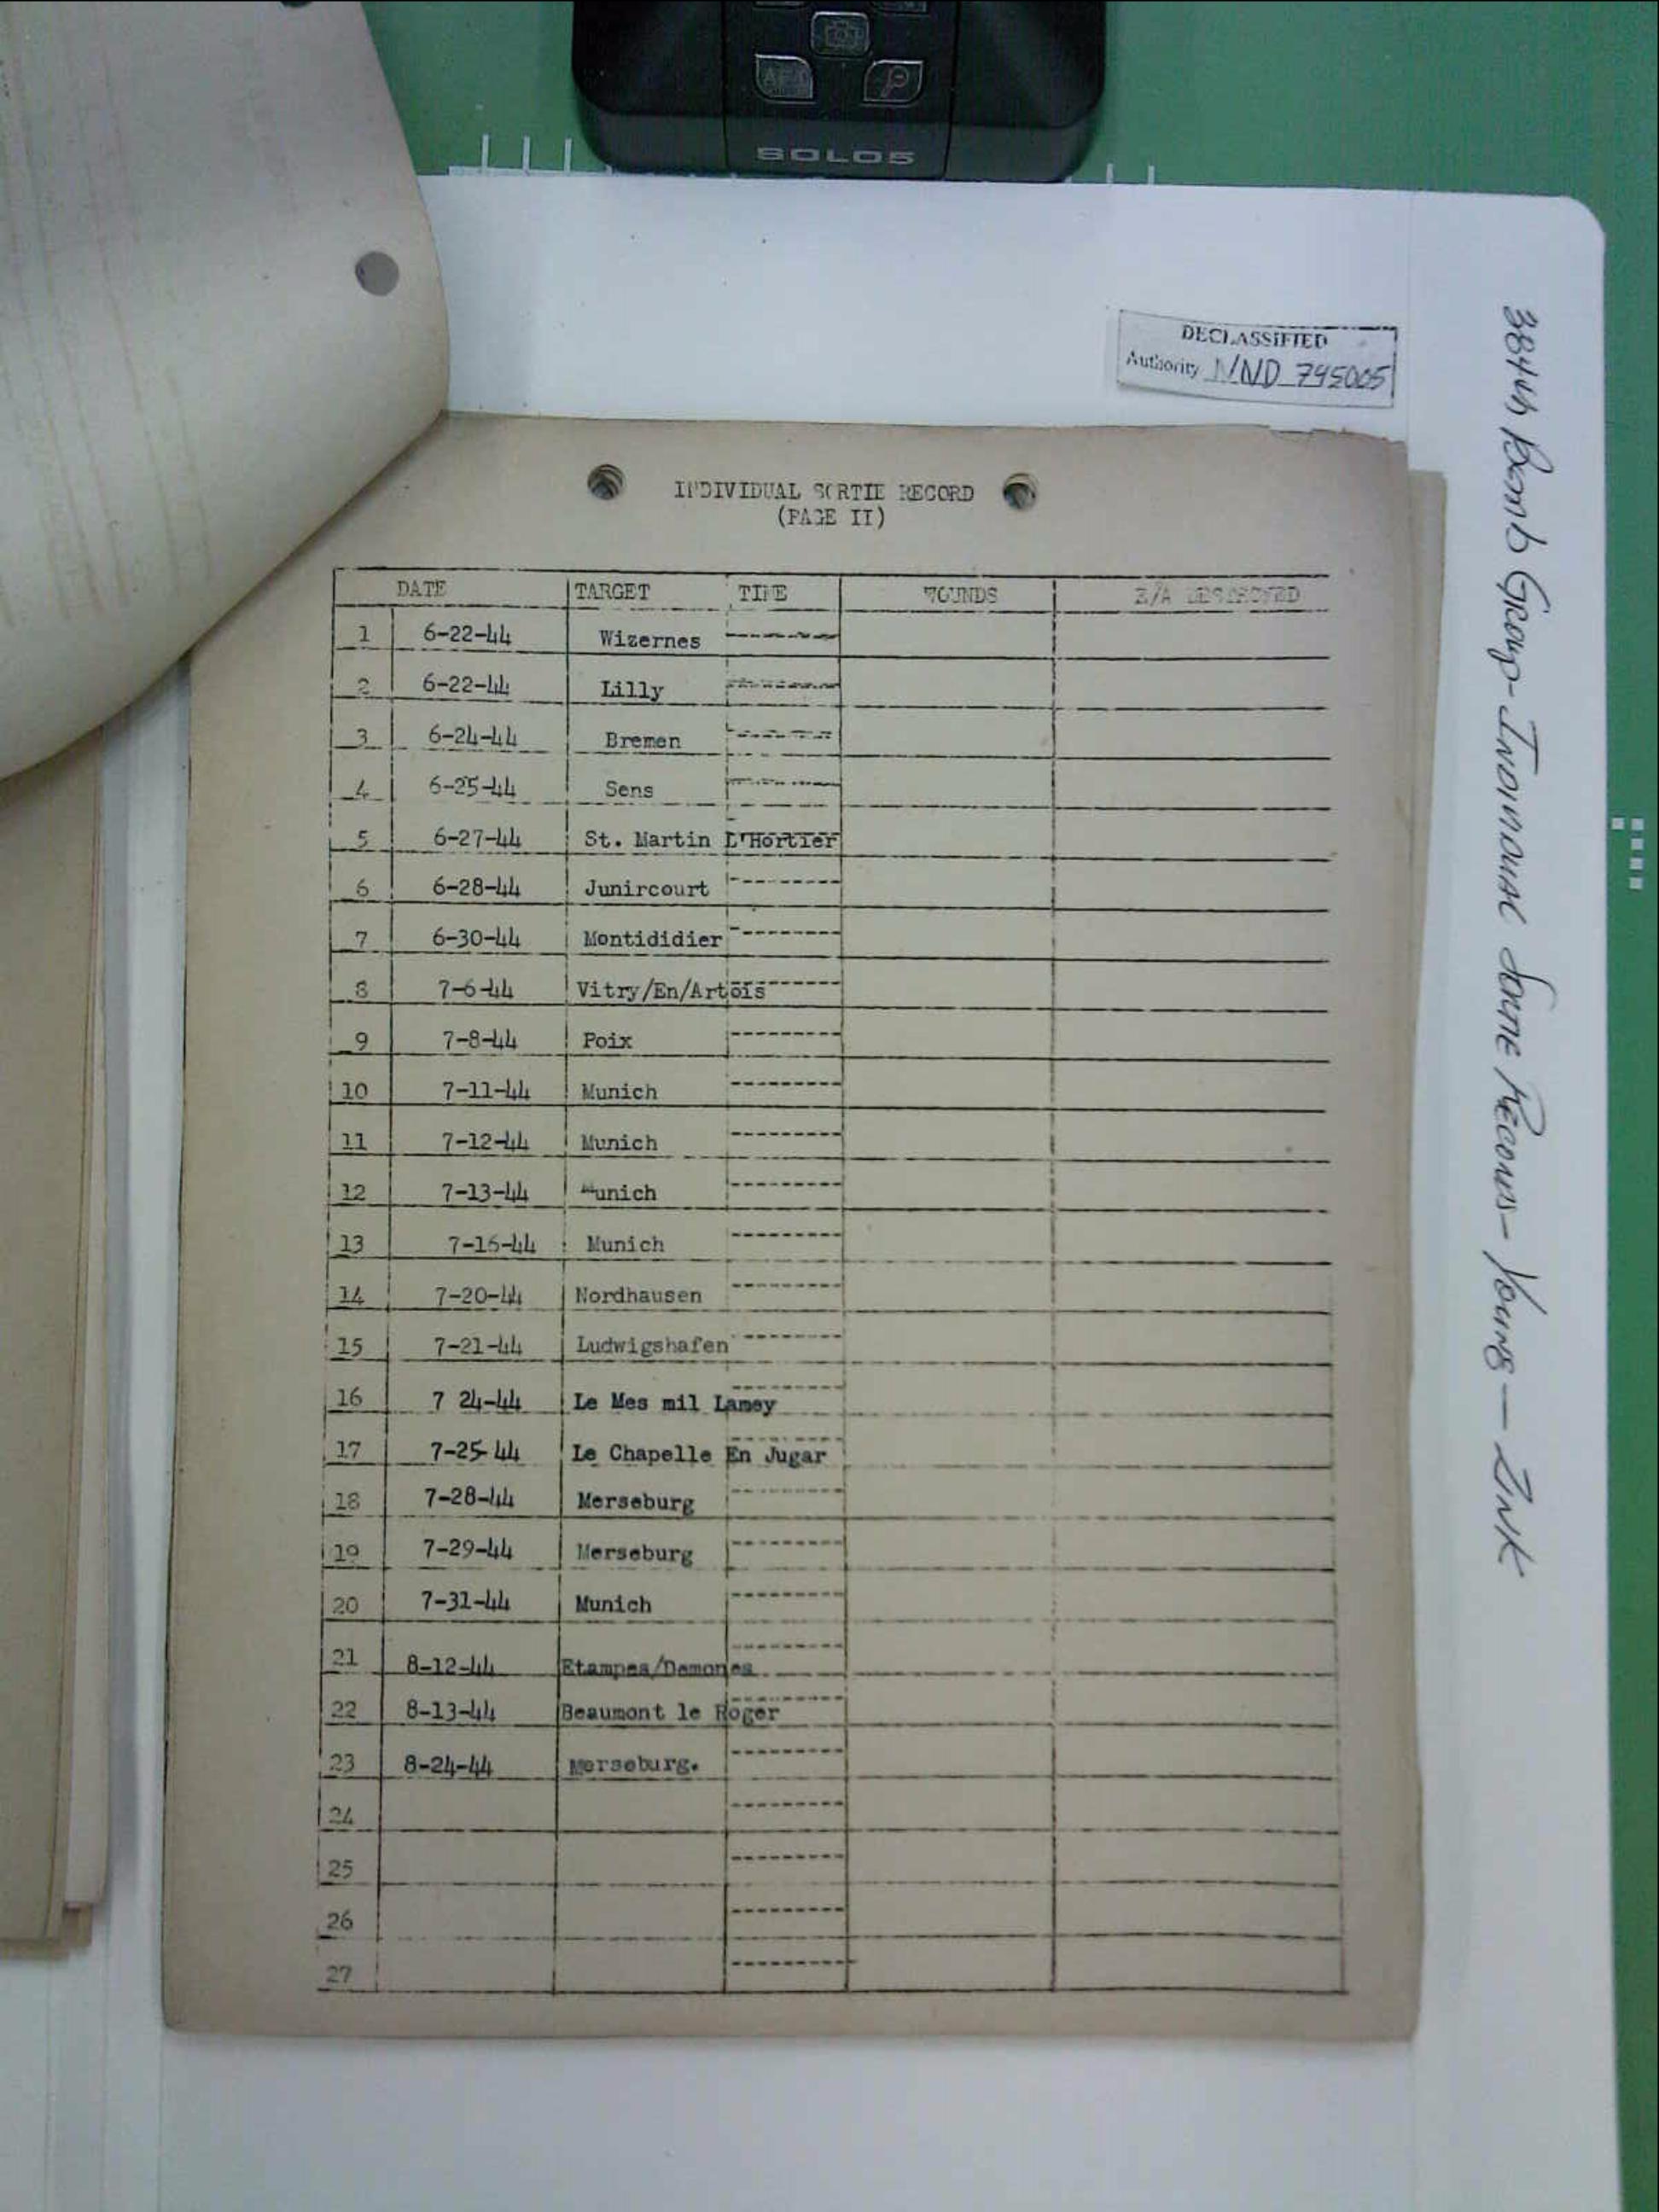 SOLO5
DECLASSIFIED
Authority NND 745005
384th Bomb Group - Individual Sortie Records - Young — Zink
INDIVIDUAL SORTIE RECORD
(PAGE II)
DATE TARGET TIME WOUNDS E/A DESTROYED
1 6-22-44 Wizernes
2 6-22-44 Lilly
3 6-24-44 Bremen
4 6-25-44 Sens
5 6-27-44 St. Martin L'Hortier
6 6-28-44 Junircourt
7 6-30-44 Montididier
8 7-6-44 Vitry/En/Artois
9 7-8-44 Poix
10 7-11-44 Munich
11 7-12-44 Munich
12 7-13-44 Munich
13 7-16-44 Munich
14 7-20-44 Nordhausen
15 7-21-44 Ludwigshafen
16 7 24-44 Le Mes mil Lamey
17 7-25-44 Le Chapelle En Jugar
18 7-28-44 Merseburg
19 7-29-44 Merseburg
20 7-31-44 Munich
21 8-12-44 Etampes/Demones
22 8-13-44 Beaumont le Roger
23 8-24-44 Merseburg.
24
25
26
27